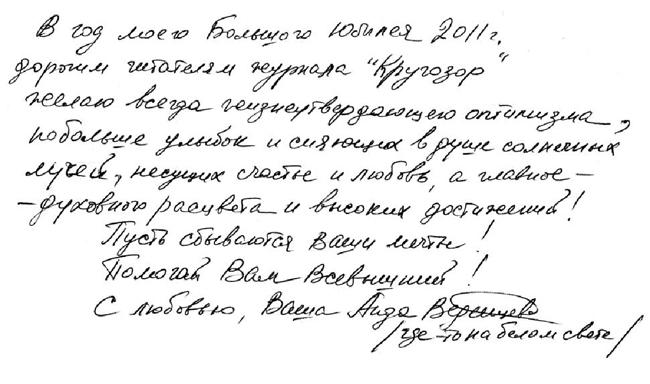 В год моего Большого Юбилея 2011 г.
дорогим читателям журнала "Кругозор"
желаю всегда жизнеутверждающего оптимизма,
побольше улыбок и сияющих в душе солнечных
лучей, несущих счастье и любовь, а главное –
– духовного расцвета и высоких достижений!
Пусть сбываются Ваши мечты!
Помогай Вам Всевышний!
С любовью, Ваша Аида Ведищева
/где-то на белом свете/